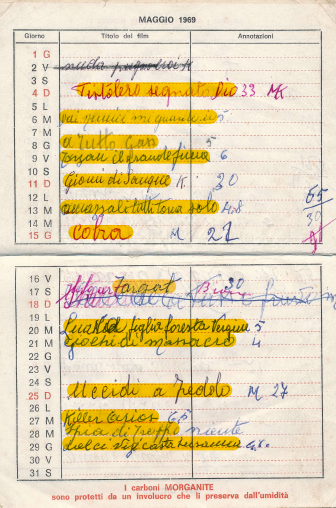 MAGGIO 1969
Giorno Titolo del film Annotazioni
1 G
2 V nuda
3 S
4 D Pistolero segnato Dio 33 MK
5 L
6 M 5
7 M
8 G a tutto Gas 5
9 V Tarzan il grande fiume 6
10 S
11 D Giorni di sangue K. 30
12 L 65
13 M ammazzali tutti torna solo 4.8 30
14 M
15 G Cobra M 21
16 V 30
17 S Targat
18 D
19 L
20 M figlia foresta Vergine 5
21 M Giochi di massacro 4
22 G
23 V
24 S
25 D Uccidi a Toledo M 27
26 L
27 M Killer
28 M Spia di troppo niente
29 G dolci vizi casta Susanna
30 V
31 S
I carboni MORGANITE
sono protetti da un involucro che li preserva dall'umidità